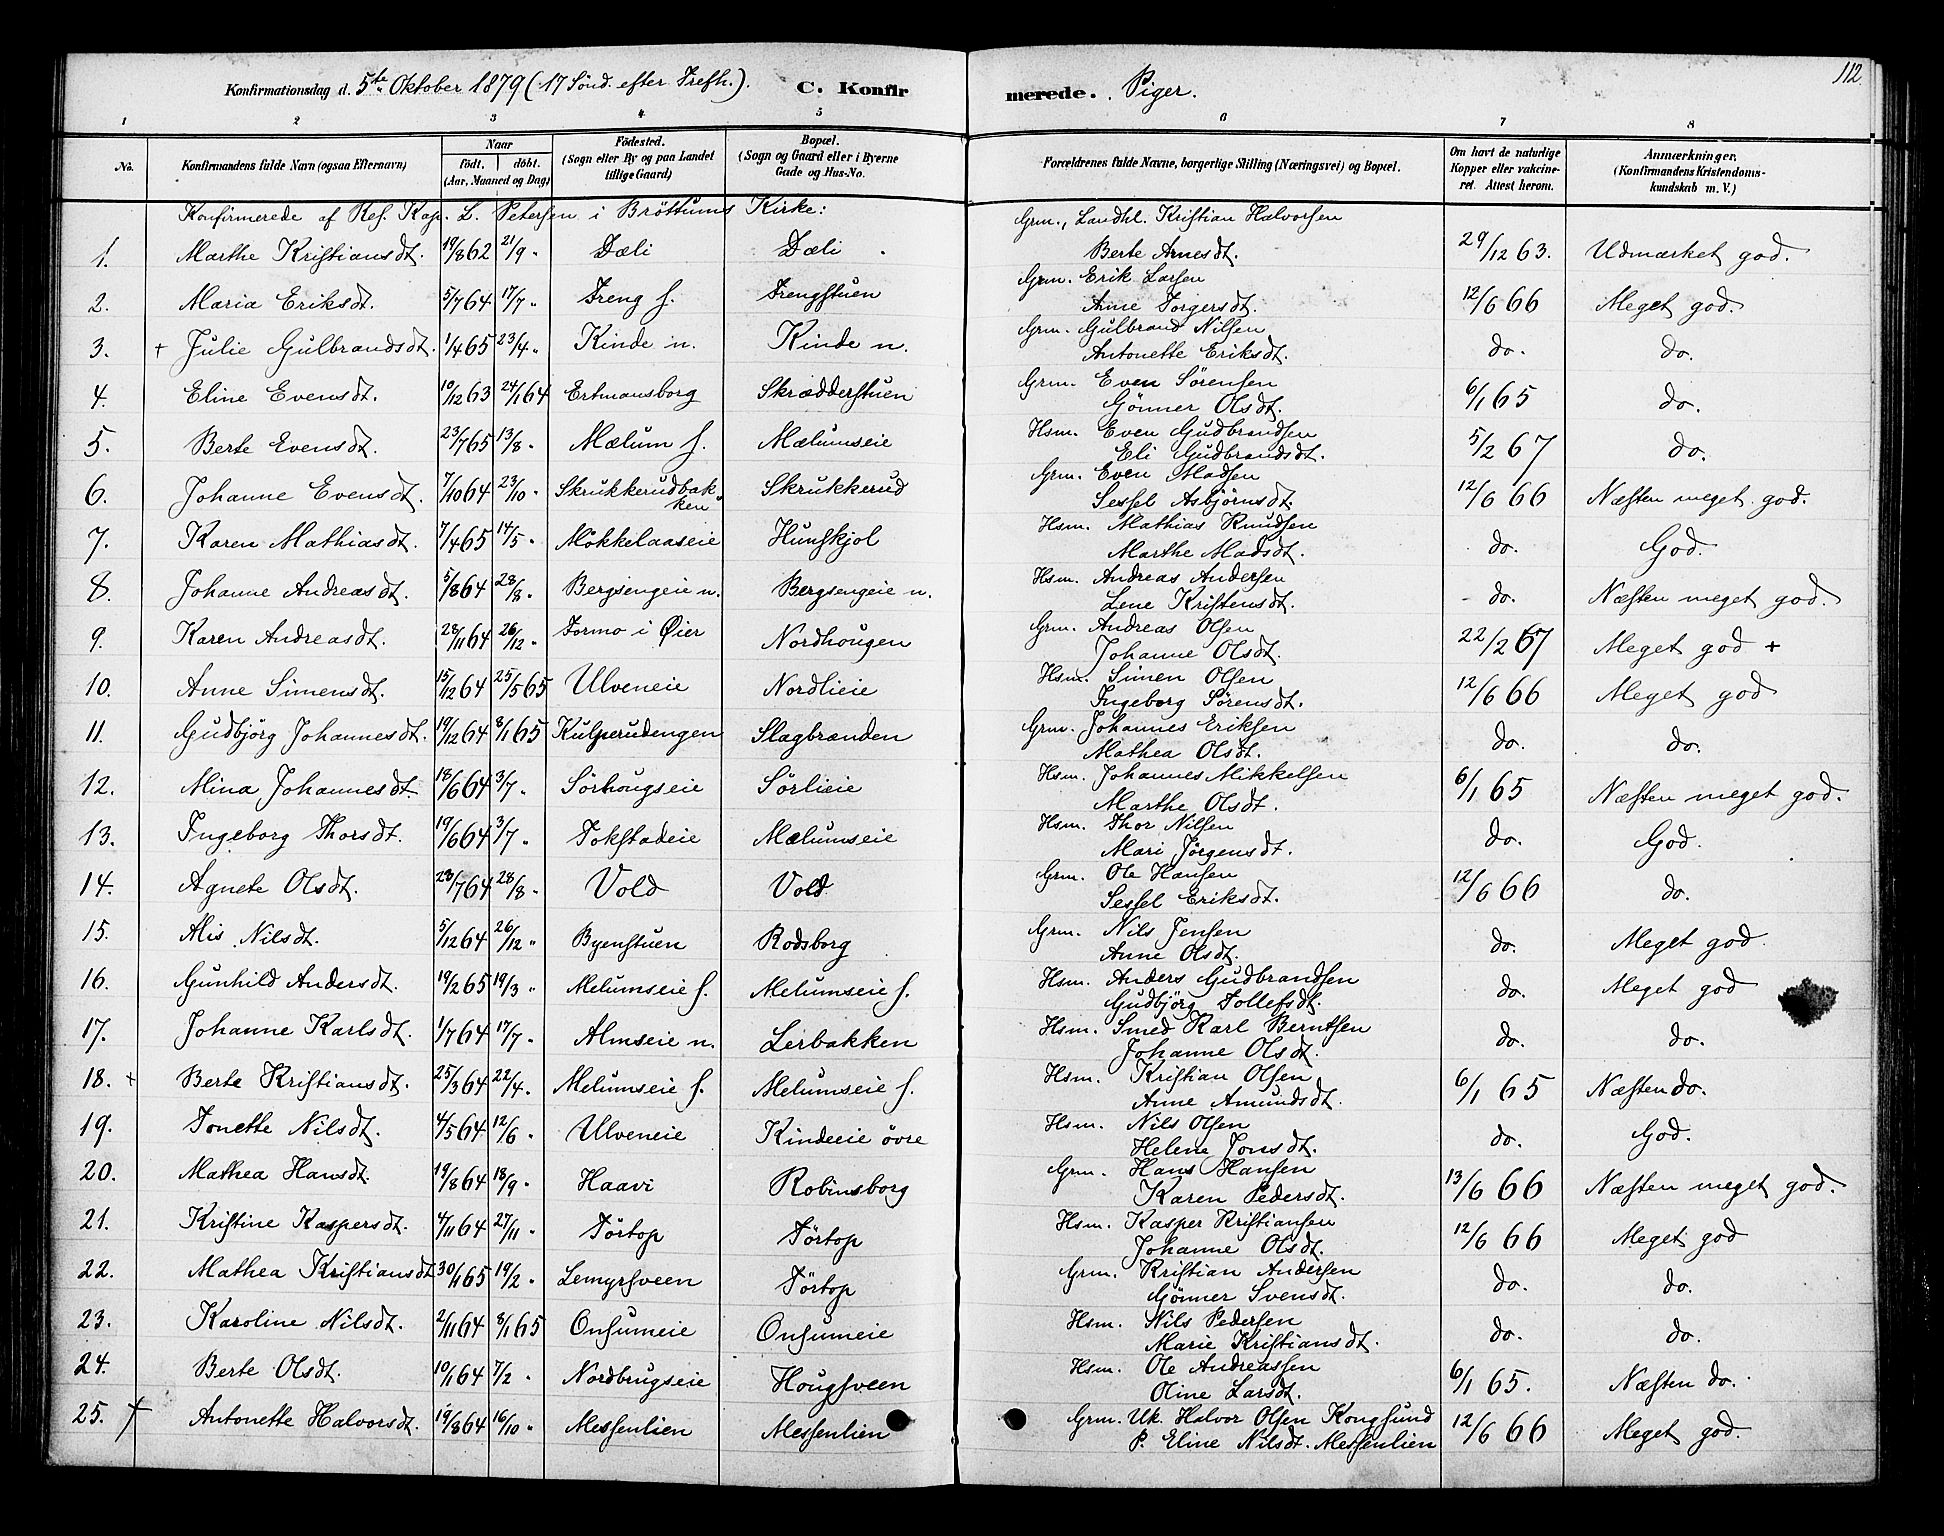 112
Konfirmationsdag d. 5te Oktober 1879 (17 Sönd. efter Trefh.). C. Konfirmerede. Piger.
1 2 3 4 5 6 7 8
No. Konfirmandens fulde Navn (ogsaa Efternavn) Naar født, døbt. (Aar, Maaned og Dag) Födested. (Sogn eller By og paa Landet tillige Gaard) Bopæl. (Sogn og Gaard eller i Byerne Gade og Hus-No. Forældrenes fulde Navne, borgerlige Stilling (Næringsvei) og Bopæl. Om havt de naturlige Kopper eller vakcineret. Attest herom. Anmærkninger. (Konfirmandens Kristendomskundskab m. V.)
Konfirmerede af Res. Kap. L. Petersen i Bröttums Kirke:
1. Marthe Kristiansdt. 19/8 62 21/9 " Dæli Dæli Grm., Landhl. Kristian Halvorsen
Berte Arnesdt. 29/12 63. Udmærket god.
2. Maria Eriksdt. 5/7 64 17/7 " Freng s. Frengstuen Grm. Erik Larsen
Anne Torgersdt. 12/6 66 Meget god.
3. + Julie Gulbrandsdt. 1/4 65 23/4 " Kinde n. Kinde n. Grm. Gulbrand Nilsen
Antonette Eriksdt. do. do.
4. Eline Evensdt. 10/12 63 24/1 64 Ertmansborg Skrædderstuen Grm. Even Sörensen
Gönner Olsdt. 6/1 65 do.
5. Berte Evensdt. 23/7 65 13/8 " Mælum s. Mælumseie Hsm. Even Gudbrandsen
Eli Gudbrandsdt. 5/2 67 do.
6. Johanne Evensdt. 7/10 64 23/10 " Skrukkerudbakken Skrukkerud Grm. Even Madsen
Sessel Asbjörnsdt. 12/6 66 Næsten meget god.
7. Karen Mathiasdt. 7/4 65 14/5 " Mökkelaaseie Hunskjol Hsm. Mathias Knudsen
Marthe Madsdt. do. God.
8. Johanne Andreasdt. 5/8 64 28/8 " Bergsengeie n. Bergsengeie n. Hsm. Andreas Andersen
Lene Kristensdt. do. Næsten meget god.
9. Karen Andreasdt. 28/11 64 26/12 " Formo i Øier Nordhougen Grm. Andreas Olsen
Johanne Olsdt. 22/2 67 Meget god +
10. Anne Simensdt. 15/12 64 25/5 65 Ulveneie Nordlieie Hsm. Simen Olsen
Ingeborg Sörensdt. 12/6 66 Meget god
11. Gudbjörg Johannesdt. 19/12 64 8/1 65 Kulperudengen Slagbranden Grm. Johannes Eriksen
Mathea Olsdt. do. do.
12. Mina Johannesdt. 18/6 64 3/7 " Sörhougseie Sörlieie Hsm. Johannes Mikkelsen
Marthe Olsdt. 6/1 65 Næsten meget god.
13. Ingeborg Thorsdt. 19/6 64 3/7 " Tokstadeie Mælumseie Hsm. Thor Nilsen
Mari Jörgensdt. do. God.
14. Agnete Olsdt. 28/7 64 28/8 " Vold Vold Grm. Ole Hansen
Sessel Eriksdt. 12/6 66 do.
15. Alis Nilsdt. 5/12 64 26/12 " Byenstuen Rodsborg Grm. Nils Jensen
Anne Olsdt. do. Meget god.
16. Gunhild Andersdt. 19/2 65 19/3 " Melumseie s. Melumseie s. Hsm. Anders Gudbrandsen
Gudbjörg Tollefsdt. do. Meget god
17. Johanne Karlsdt. 1/7 64 17/7 " Almseie n. Lerbakken Hsm. Smed Karl Berntsen
Johanne Olsdt. do. do.
18. + Berte Kristiansdt. 25/3 64 22/4 " Melumseie s. Melumseie s. Hsm. Kristian Olsen
Anne Amundsdt. 6/1 65 Næsten do.
19. Tonette Nilsdt. 4/5 64 12/6 " Ulveneie Kindeeie övre Hsm. Nils Olsen
Helene Jonsdt. do. God.
20. Mathea Hansdt. 19/8 64 18/9 " Haavi Robinsborg Grm. Hans Hansen
Karen Pedersdt. 13/6 66 Næsten meget god.
21. Kristine Kaspersdt. 4/11 64 27/11 " Törtop Törtop Hsm. Kasper Kristiansen
Johanne Olsdt. 12/6 66 Meget god
22. Mathea Kristiansdt 30/1 65 19/2 " Lemyrsveen Törtop Grm. Kristian Andersen
Gönner Svensdt. do. do.
23. Karoline Nilsdt. 2/11 64 8/1 65 Onsumeie Onsumeie Hsm. Nils Pedersen
Marie Kristiansdt. do. do.
24. Berte Olsdt. 10/1 64 7/2 " Nordbrugseie Hougsveen Hsm. Ole Andreassen
Oline Larsdt. 6/1 65. Næsten do.
25. + Antonette Halvorsdt. 19/8 64 16/10 " Messenlien Messenlien Grm. Uk. Halvor Olsen Kongsund
P. Eline Nilsdt. Messenlien 12/6 66 Meget god.